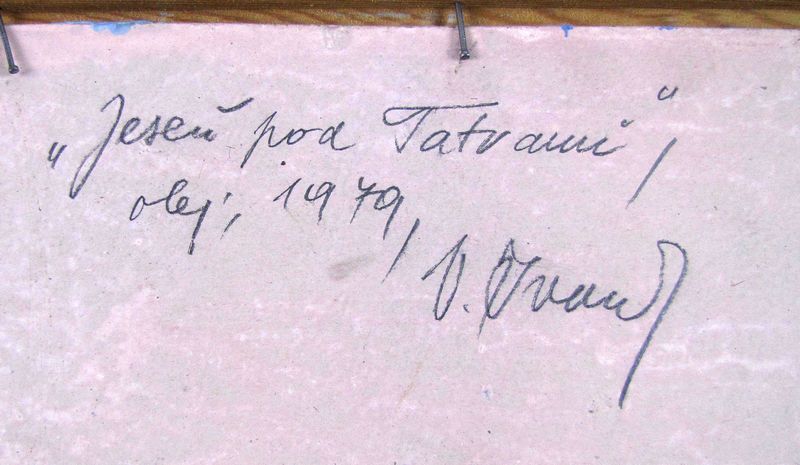 „Jeseň pod Tatrami",
olej, 1979,
V. Ivan